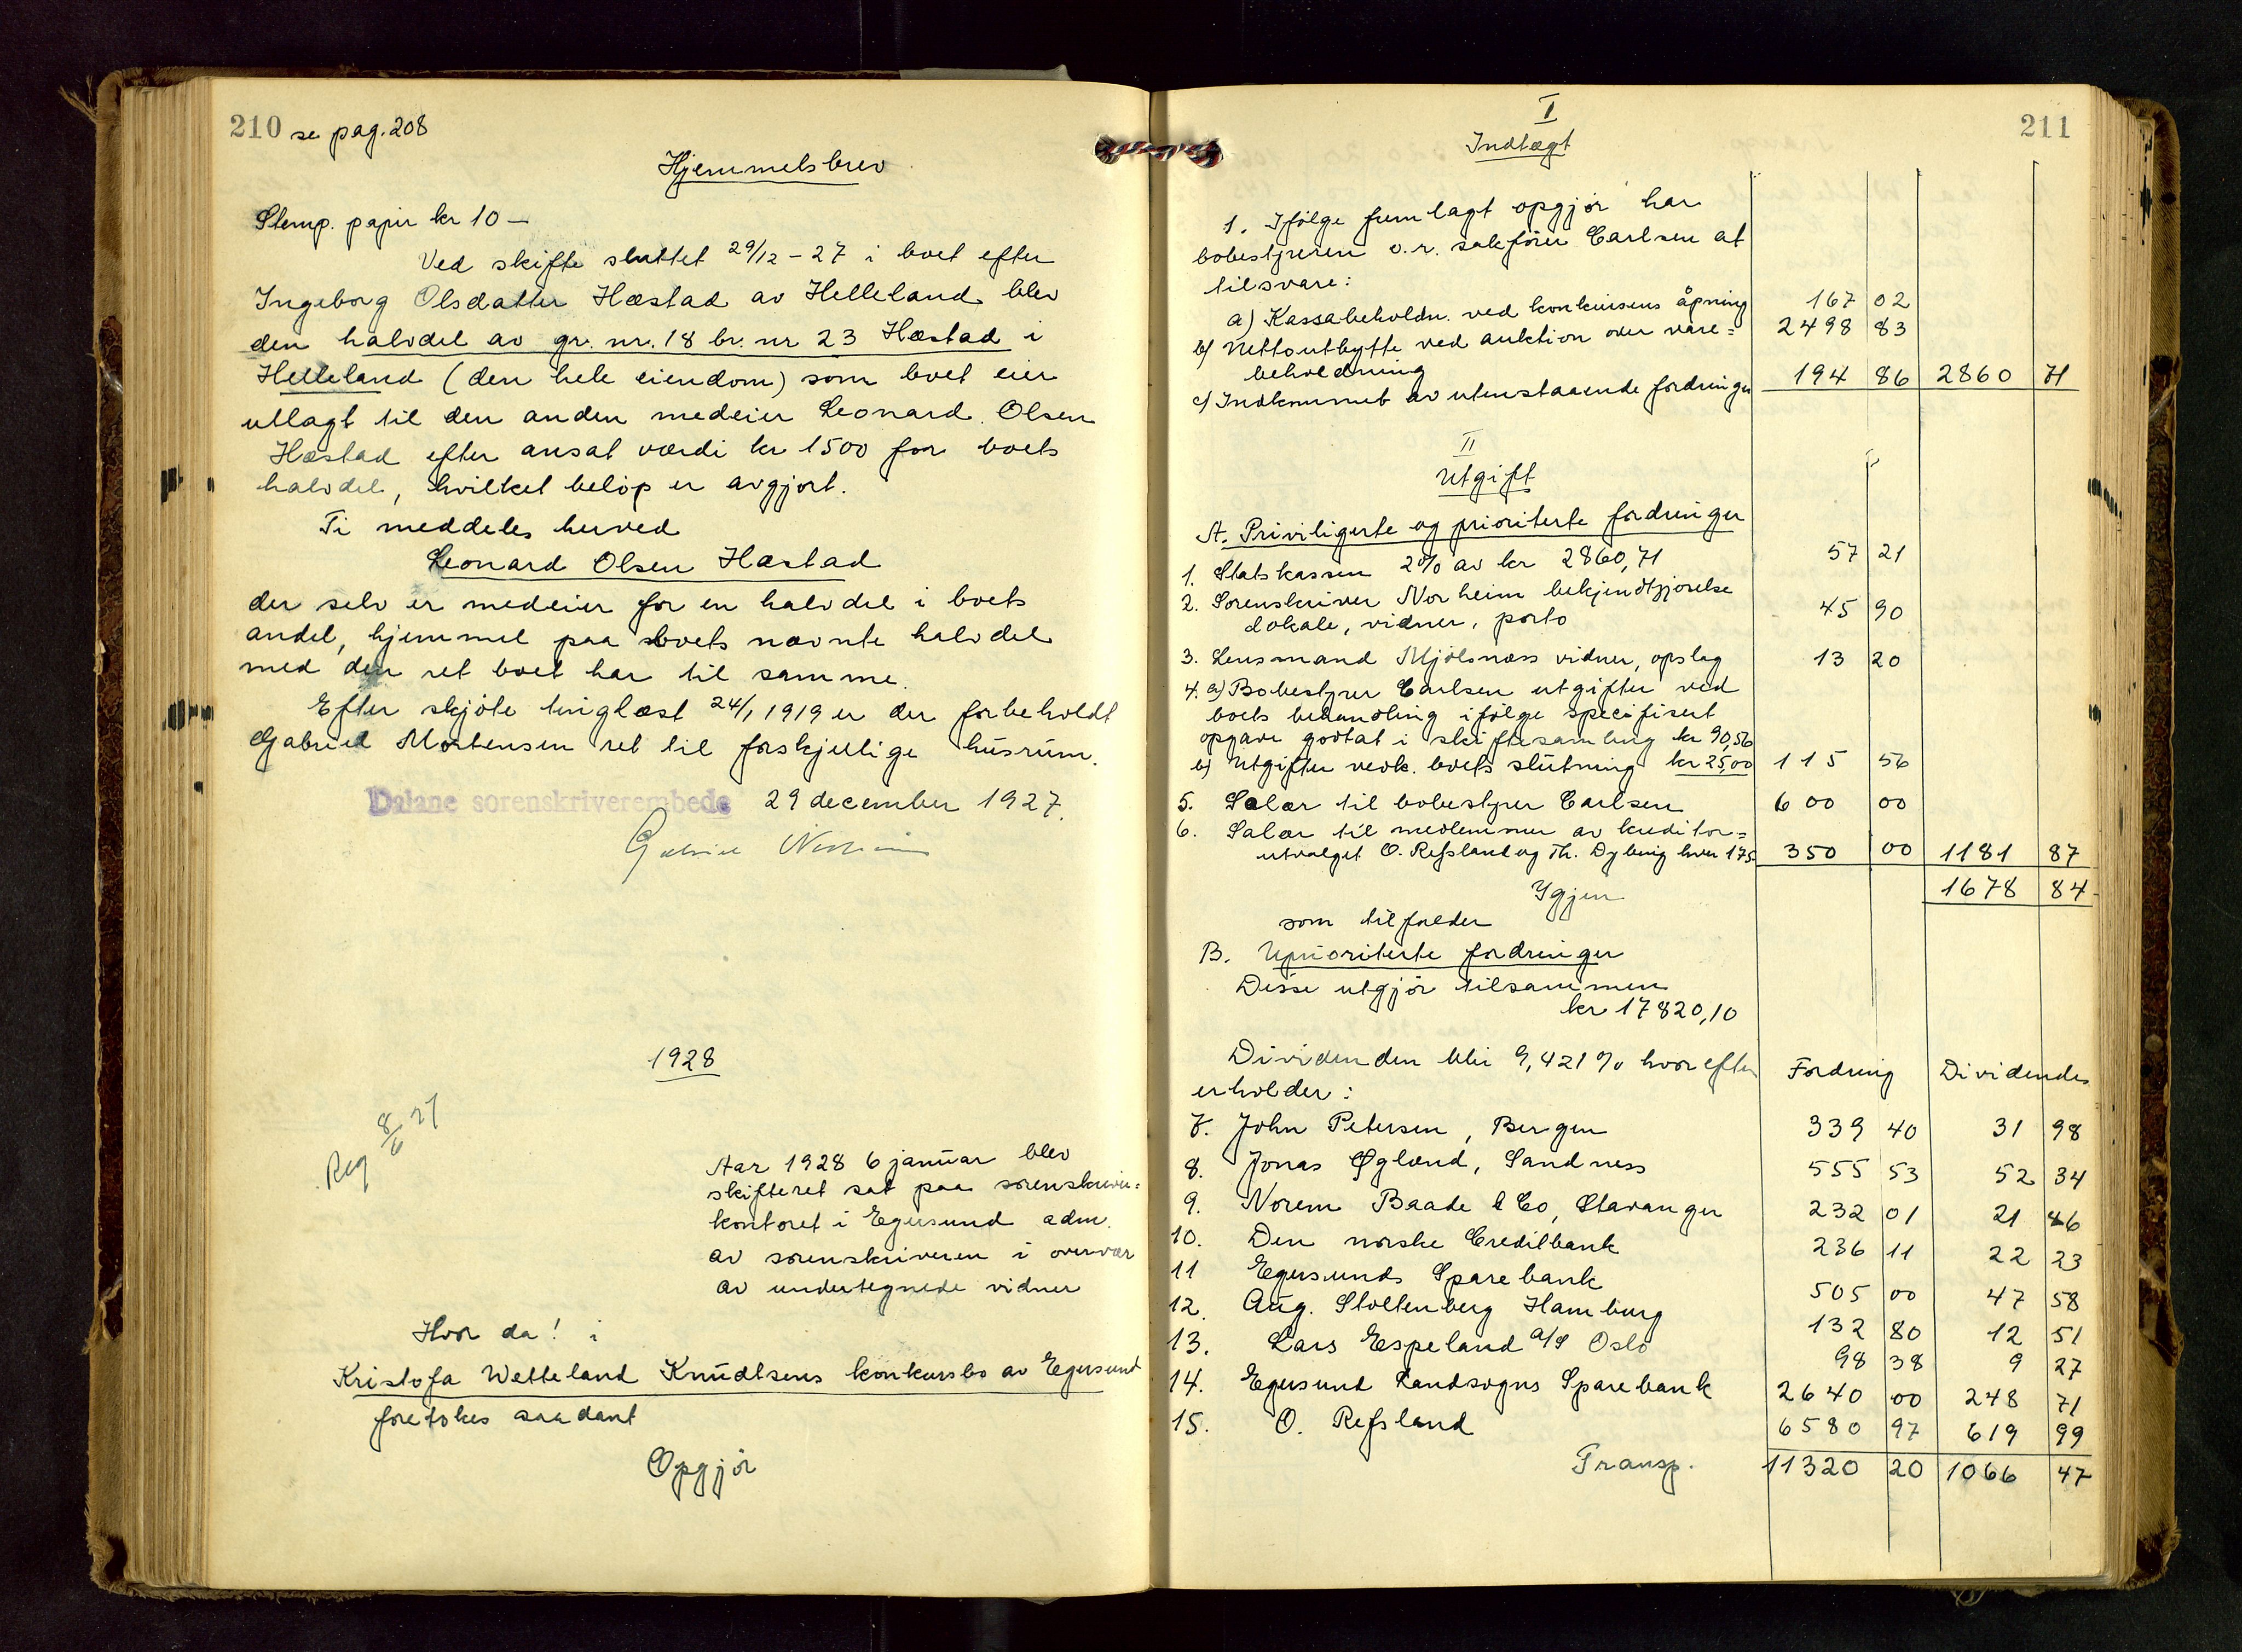 210 se pag. 208
Hjemmelsbrev
Stemp. papir kr 10 —
Ved skifte sluttet 29/12 – 27 i boet efter
Ingeborg Olsdatter Hæstad av Helleland blev
den halvdel av gr. nr. 18 br. nr 23 Hæstad i
Helleland (den hele eiendom) som boet eier
utlagt til den anden medeier Leonard Olsen
Hæstad efter ansat værdi kr 1500 for boets
halvdel, hvilket beløp er avgjort.
Ti meddeles herved
Leonard Olsen Hæstad
der selv er medeier for en halvdel i boets
andel, hjemmel paa boets nævnte halvdel
med den ret boet har til samme.
Efter skjøte tinglæst 24/1 1919 er der forbeholdt
Gabriel Mortensen ret til forskjellige husrum.
Dalane sorenskriverembede 29 december 1927.
Gabriel Norheim
1928
Reg 8/6 27
Aar 1928 6 januar blev
skifteret sat paa sorenskriver=
kontoret i Egersund adm.
av sorenskriveren i overvær
av undertegnede vidner
Hvor da! i
Kristofa Wetteland Knudtsens konkursbo av Egersund
foretokes saadant
Opgjør
211
I
Indtægt
1. Ifølge fremlagt opgjør har
bobestyreren o.r. sakfører Carlsen at
tilsvare:
a) Kassabeholdn. ved konkursens åpning 167 02
b) Nettoutbytte ved auktion over vare= 2498 83
beholdning
c) Indkommet av utenstaaende fordringer 194 86 2860 71
II
Utgift
A. Priviligerte og prioriterte fordringer
1. Statskassen 2% av kr 2860,71 57 21
2. Sorenskriver Norheim bekjendtgjørelse
lokale, vidner, porto 45 90
3. Lensmand Mjølsnæss vidner, opslag 13 20
4. a) Bobestyrer Carlsen utgifter ved
boets behandling ifølge specifisert
opgave godtat i skiftesamling kr 90,56
b) Utgifter vedk. boets slutning kr 25,00 115 56
5. Salær til bobestyrer Carlsen 600 00
6. Salær til medlemmer av kreditor=
utvalget O. Refsland og Th. Dybing hver 175 350 00 1181 87
Igjen 1678 84
som tilfalder
B. Uprioriterte fordringer
Disse utgjør tilsammen
kr 17820,10
Dividenden blir 9,421% hvorefter Fordring Dividende
erholder:
7. John Petersen, Bergen 339 40 31 98
8. Jonas Øglænd, Sandness 555 53 52 34
9. Norem Baade & Co, Stavanger 232 01 21 46
10. Den norske Creditbank 236 11 22 23
11 Egersunds Sparebank 505 00 47 58
12. Aug. Stoltenberg Hamburg 132 80 12 51
13. Lars Espeland a/s Oslo 98 38 9 27
14. Egersund Landsogns Sparebank 2640 00 248 71
15. O. Refsland 6580 97 619 99
Transp. 11320 20 1066 47